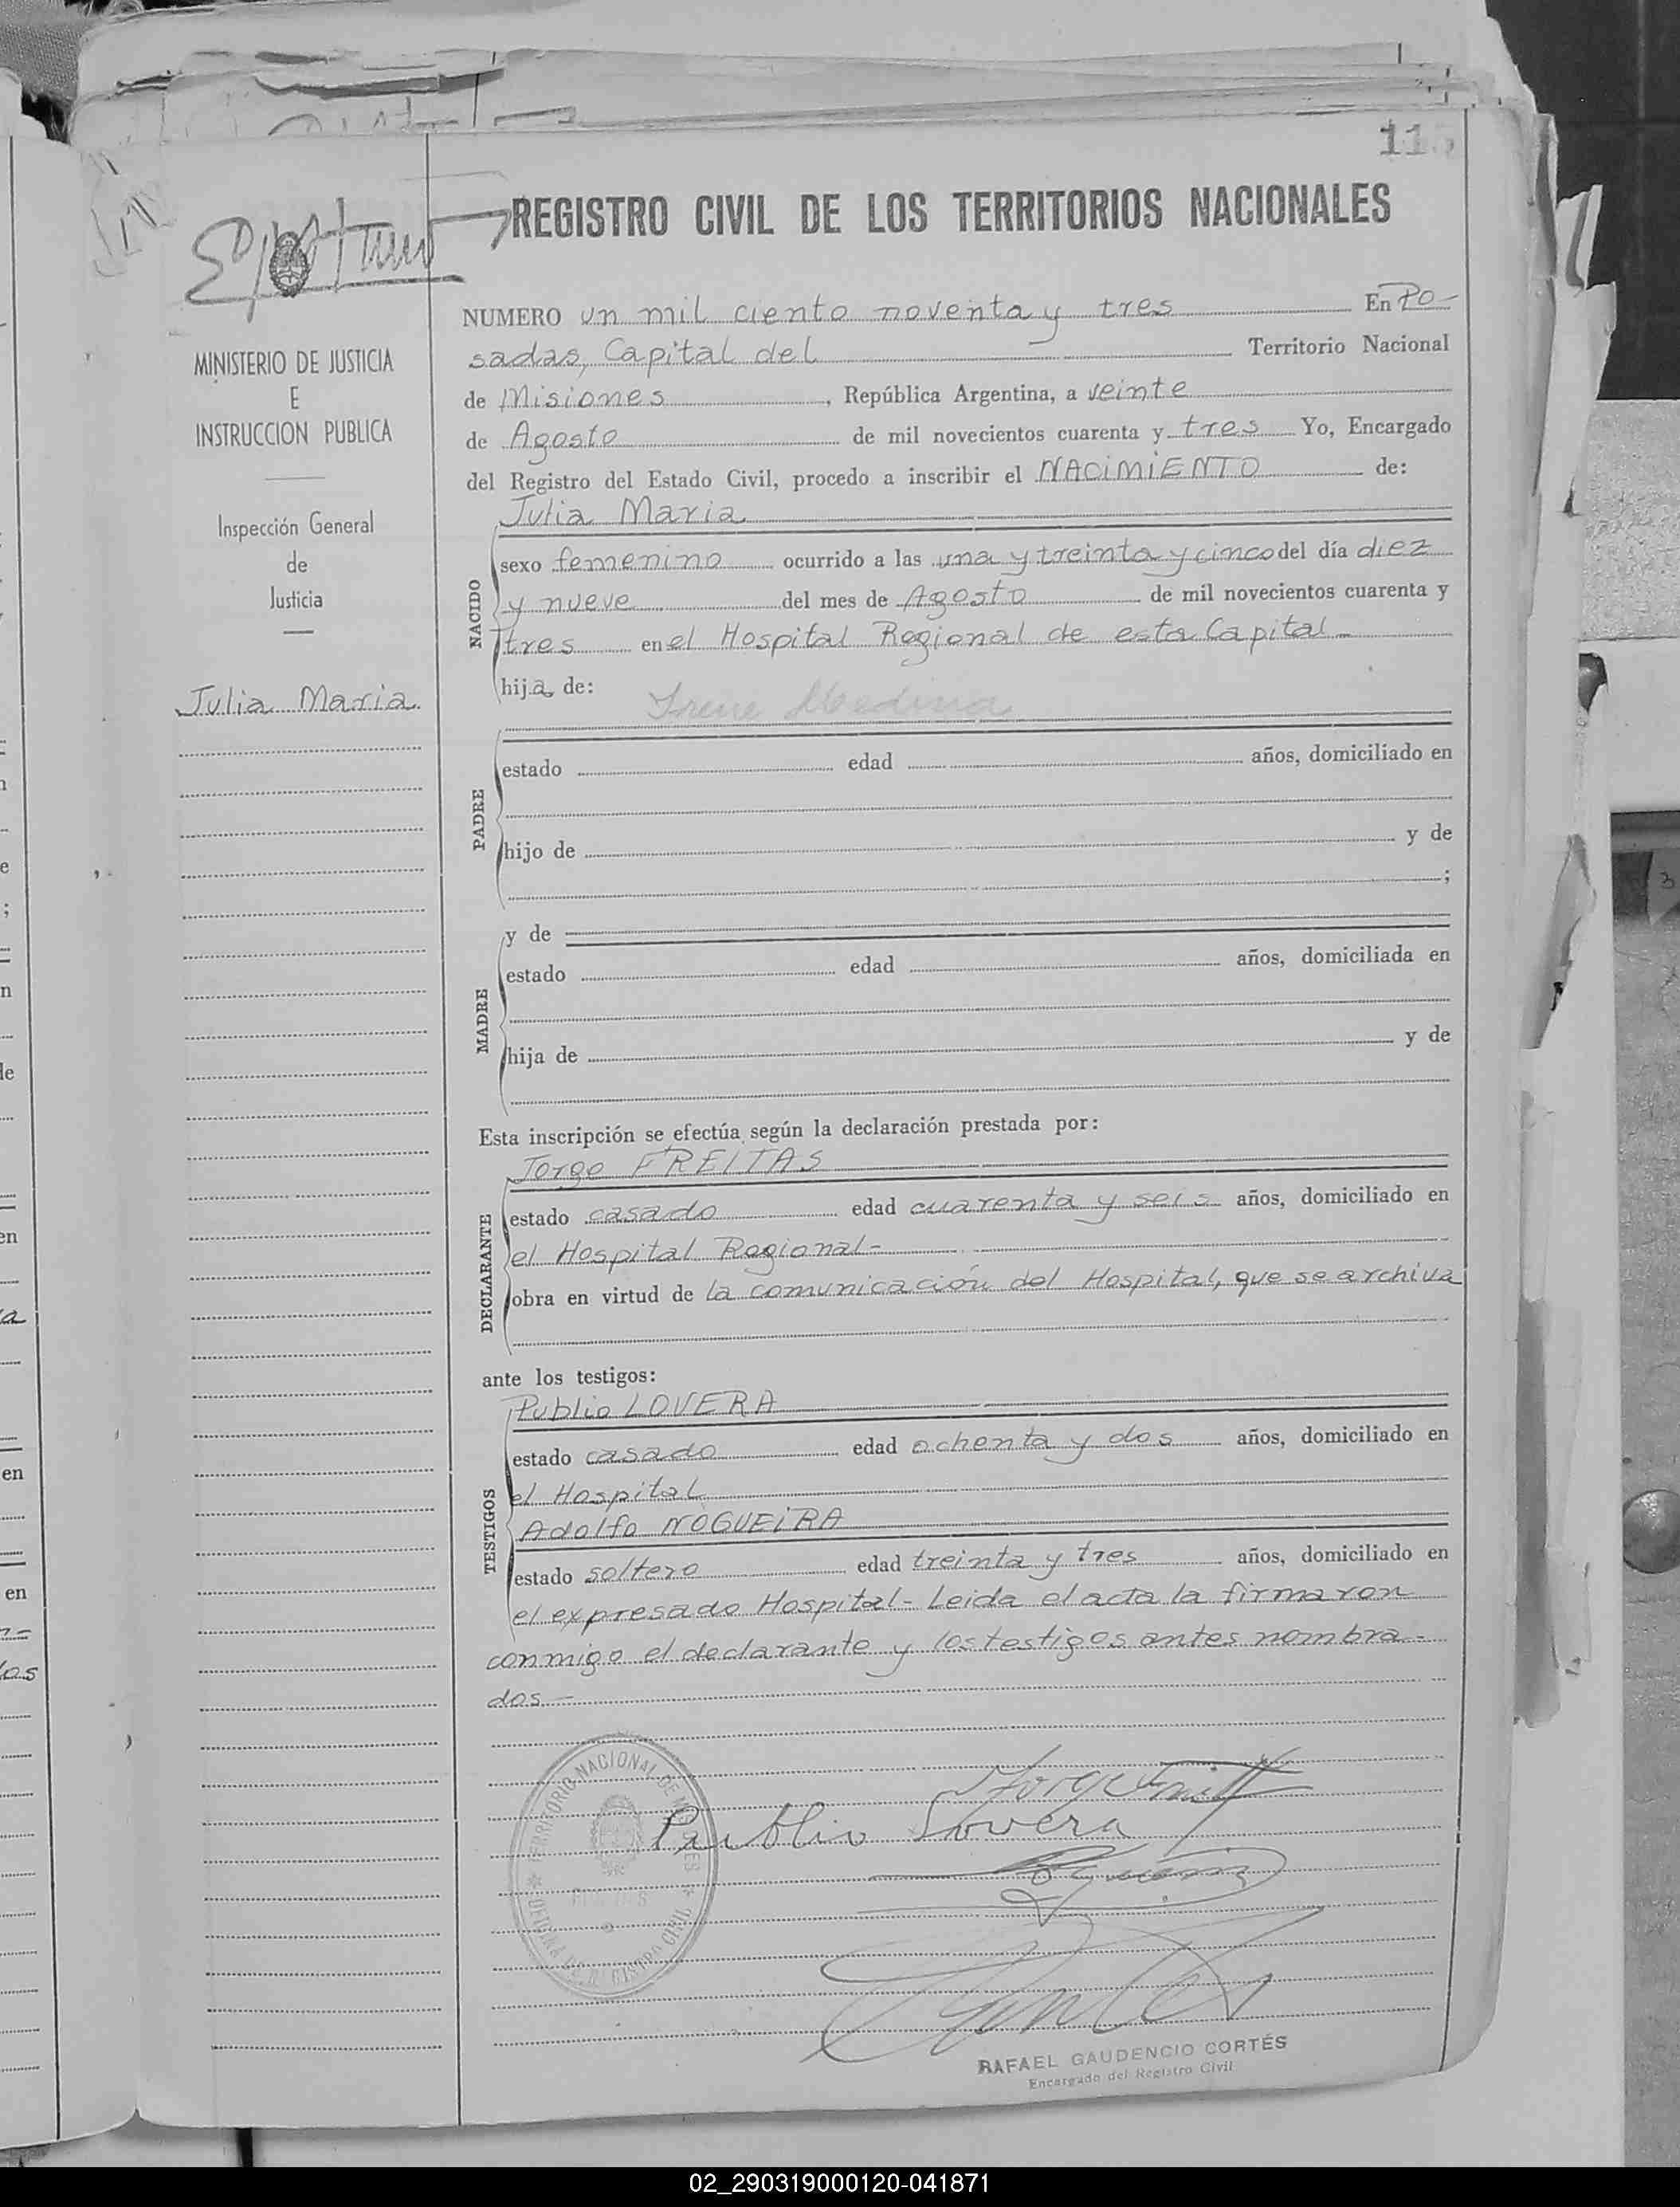 REGISTRO CIVIL DE LOS TERRITORIOS NACIONALES
MINISTERIO DE JUSTICIA
E
INSTRUCCION PUBLICA
Inspección General
de
Justicia
Julia Maria
NUMERO un mil ciento noventa y tres En Po-
sadas, Capital del Territorio Nacional
de Misiones, República Argentina, a veinte
de Agosto de mil novecientos cuarenta y tres Yo, Encargado
del Registro del Estado Civil, procedo a inscribir el NACIMIENTO de:
Julia Maria
NACIDO
sexo femenino ocurrido a las una y treinta y cinco del día diez
y nueve del mes de Agosto de mil novecientos cuarenta y
tres en el Hospital Regional de esta Capital-
hija de:
Irene Medina
PADRE
estado edad años, domiciliado en
hijo de y de
;
y de
MADRE
estado edad años, domiciliada en
hija de y de
Esta inscripción se efectúa según la declaración prestada por:
Jorge FREITAS
DECLARANTE
estado casado edad cuarenta y seis años, domiciliado en
el Hospital Regional-
obra en virtud de la comunicación del Hospital, que se archiva
ante los testigos:
Publio LOVERA
TESTIGOS
estado casado edad ochenta y dos años, domiciliado en
el Hospital
Adolfo NOGUEIRA
estado soltero edad treinta y tres años, domiciliado en
el expresado Hospital- Leida el acta la firmaron
conmigo el declarante y los testigos antes nombra-
dos-
TERRITORIO NACIONAL DE MISIONES
OFICINA DE REGISTRO CIVIL
Publio Lovera
RAFAEL GAUDENCIO CORTÉS
Encargado del Registro Civil
02_290319000120-041871